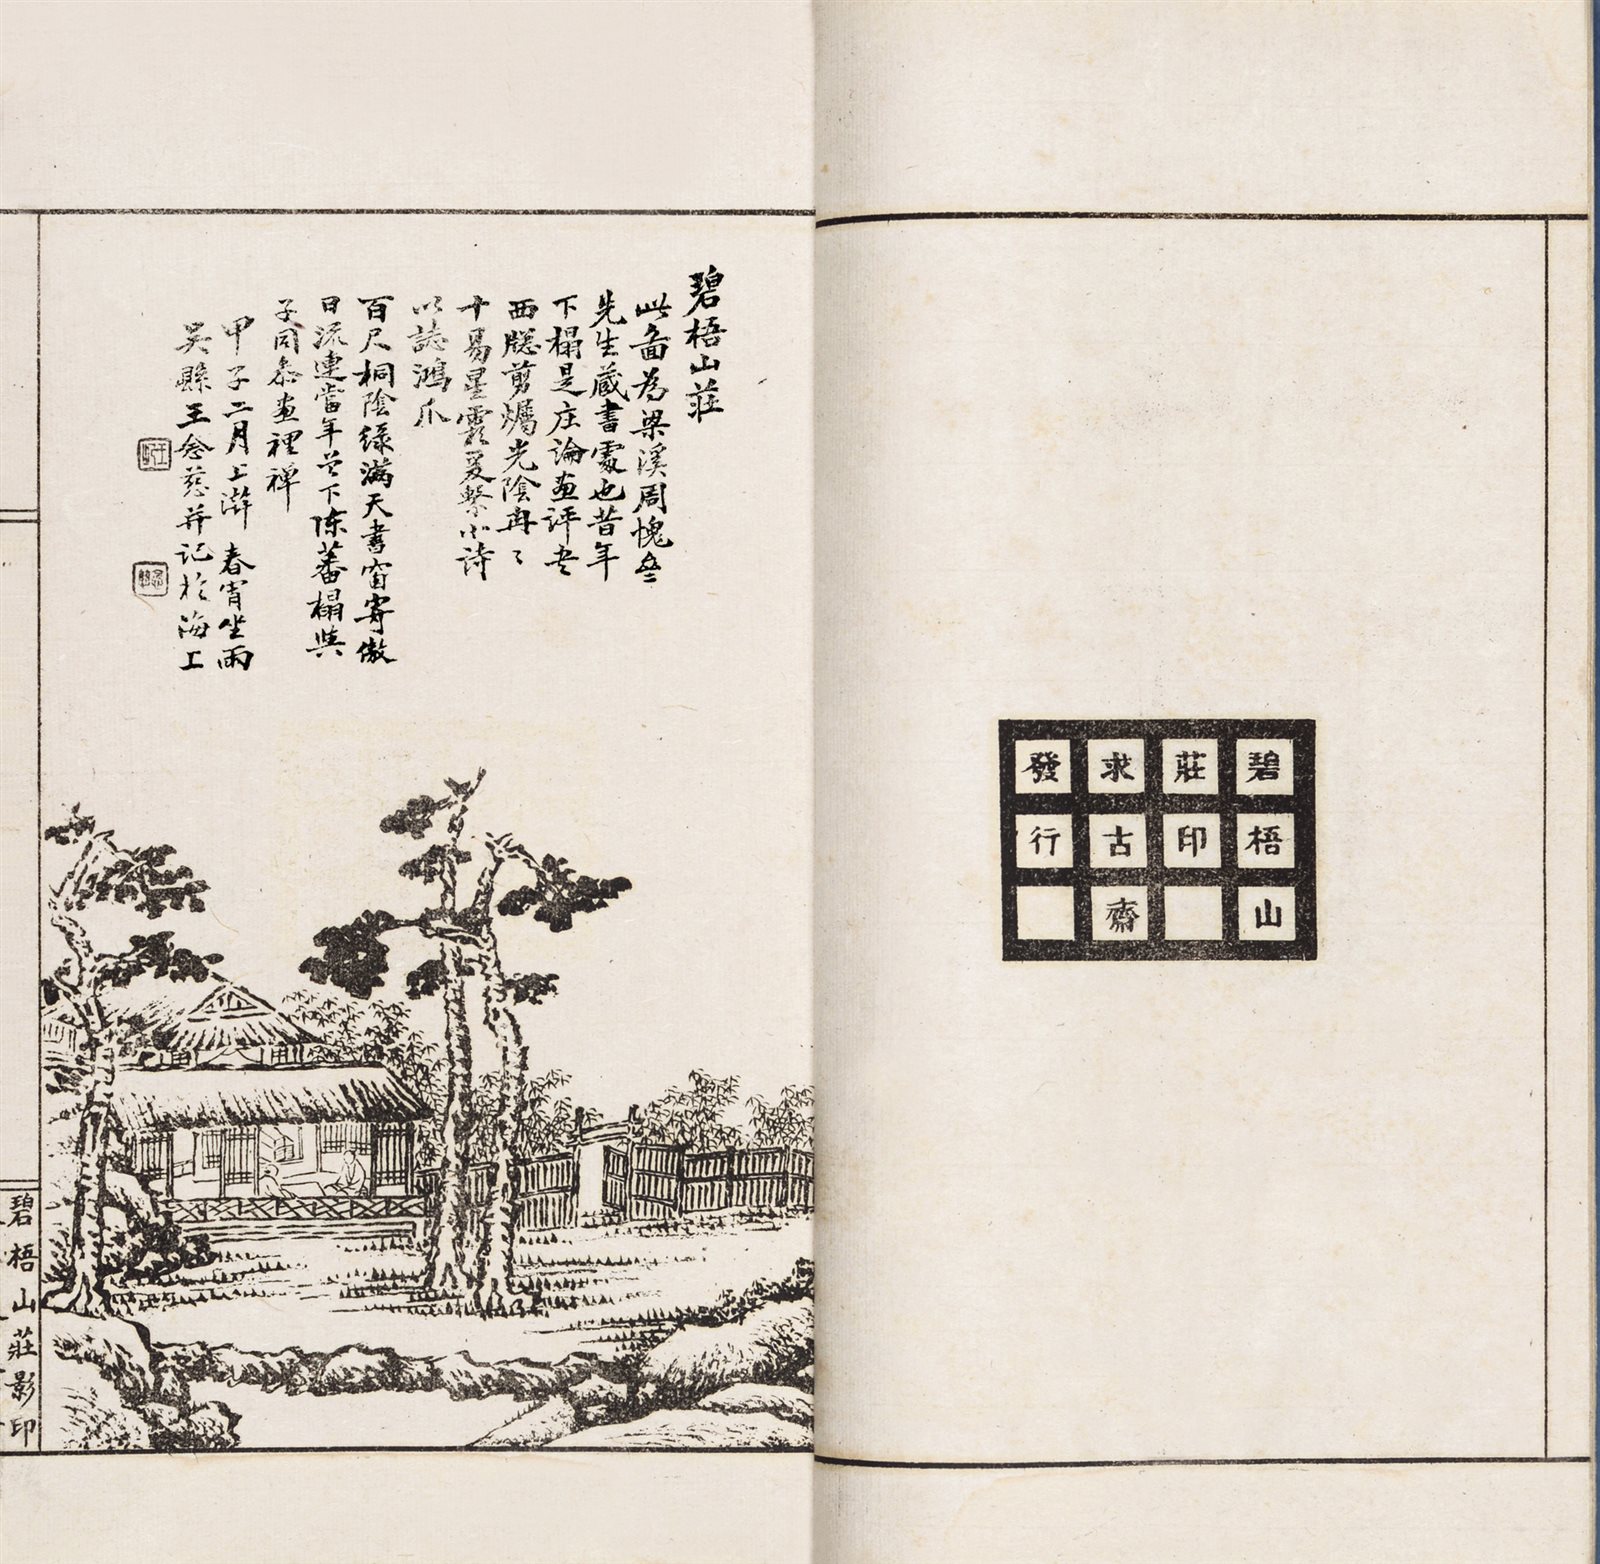 碧梧山
莊印
求古齋
發行
碧梧山莊
此啚為梁溪周愧
先生藏書處也昔年
下榻是庄論畫評
西牕剪燭光陰冉〻
十易星霜爰繫小詩
以誌鴻爪
百尺桐陰綠滿天書窗寄傲
日流連當年曾下陳蕃榻與
子同叅畫裡禪
甲子二月上澣春宵坐雨
吳縣王念慈并記於海上
碧梧山莊影印